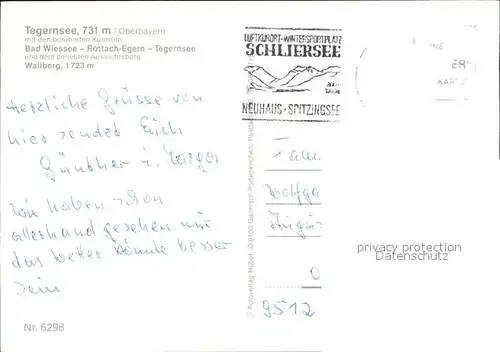 Tegernsee, 731 m / Oberbayern
mit den berühmten Kurorten
Bad Wiessee – Rottach-Egern – Tegernsee
und dem beliebten Aussichtsberg
Wallberg, 1723 m
LUFTKURORT · WINTERSPORTPLATZ
SCHLIERSEE
NEUHAUS · SPITZINGSEE
Herzliche Grüsse von
hier sendet Euch
Günther u.
Wir haben schon
allerhand gesehen nur
das Wetter könnte besser
sein
Fam.
Wolfga
9512
© Fotoverlag Huber, D 8100 Garmisch-Partenkirchen,
privacy protection
Datenschutz
Nr. 6298